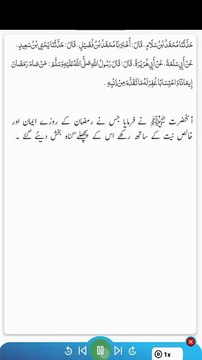 حَدَّثَنَا مُحَمَّدُ بْنُ سَلَامٍ، قَالَ: أَخْبَرَنَا مُحَمَّدُ بْنُ فُضَيْلٍ، قَالَ: حَدَّثَنَا يَحْيَى بْنُ سَعِيدٍ،
عَنْ أَبِي سَلَمَةَ، عَنْ أَبِي هُرَيْرَةَ، قَالَ: قَالَ رَسُولُ اللَّهِ صَلَّى اللَّهُ عَلَيْهِ وَسَلَّمَ: مَنْ صَامَ رَمَضَانَ
إِيمَانًا وَاحْتِسَابًا غُفِرَ لَهُ مَا تَقَدَّمَ مِنْ ذَنْبِهِ.
آنحضرت ﷺ نے فرمایا جس نے رمضان کے روزے ایمان اور
خالص نیت کے ساتھ رکھے اس کے پچھلے گناہ بخش دیئے گئے ۔
1x